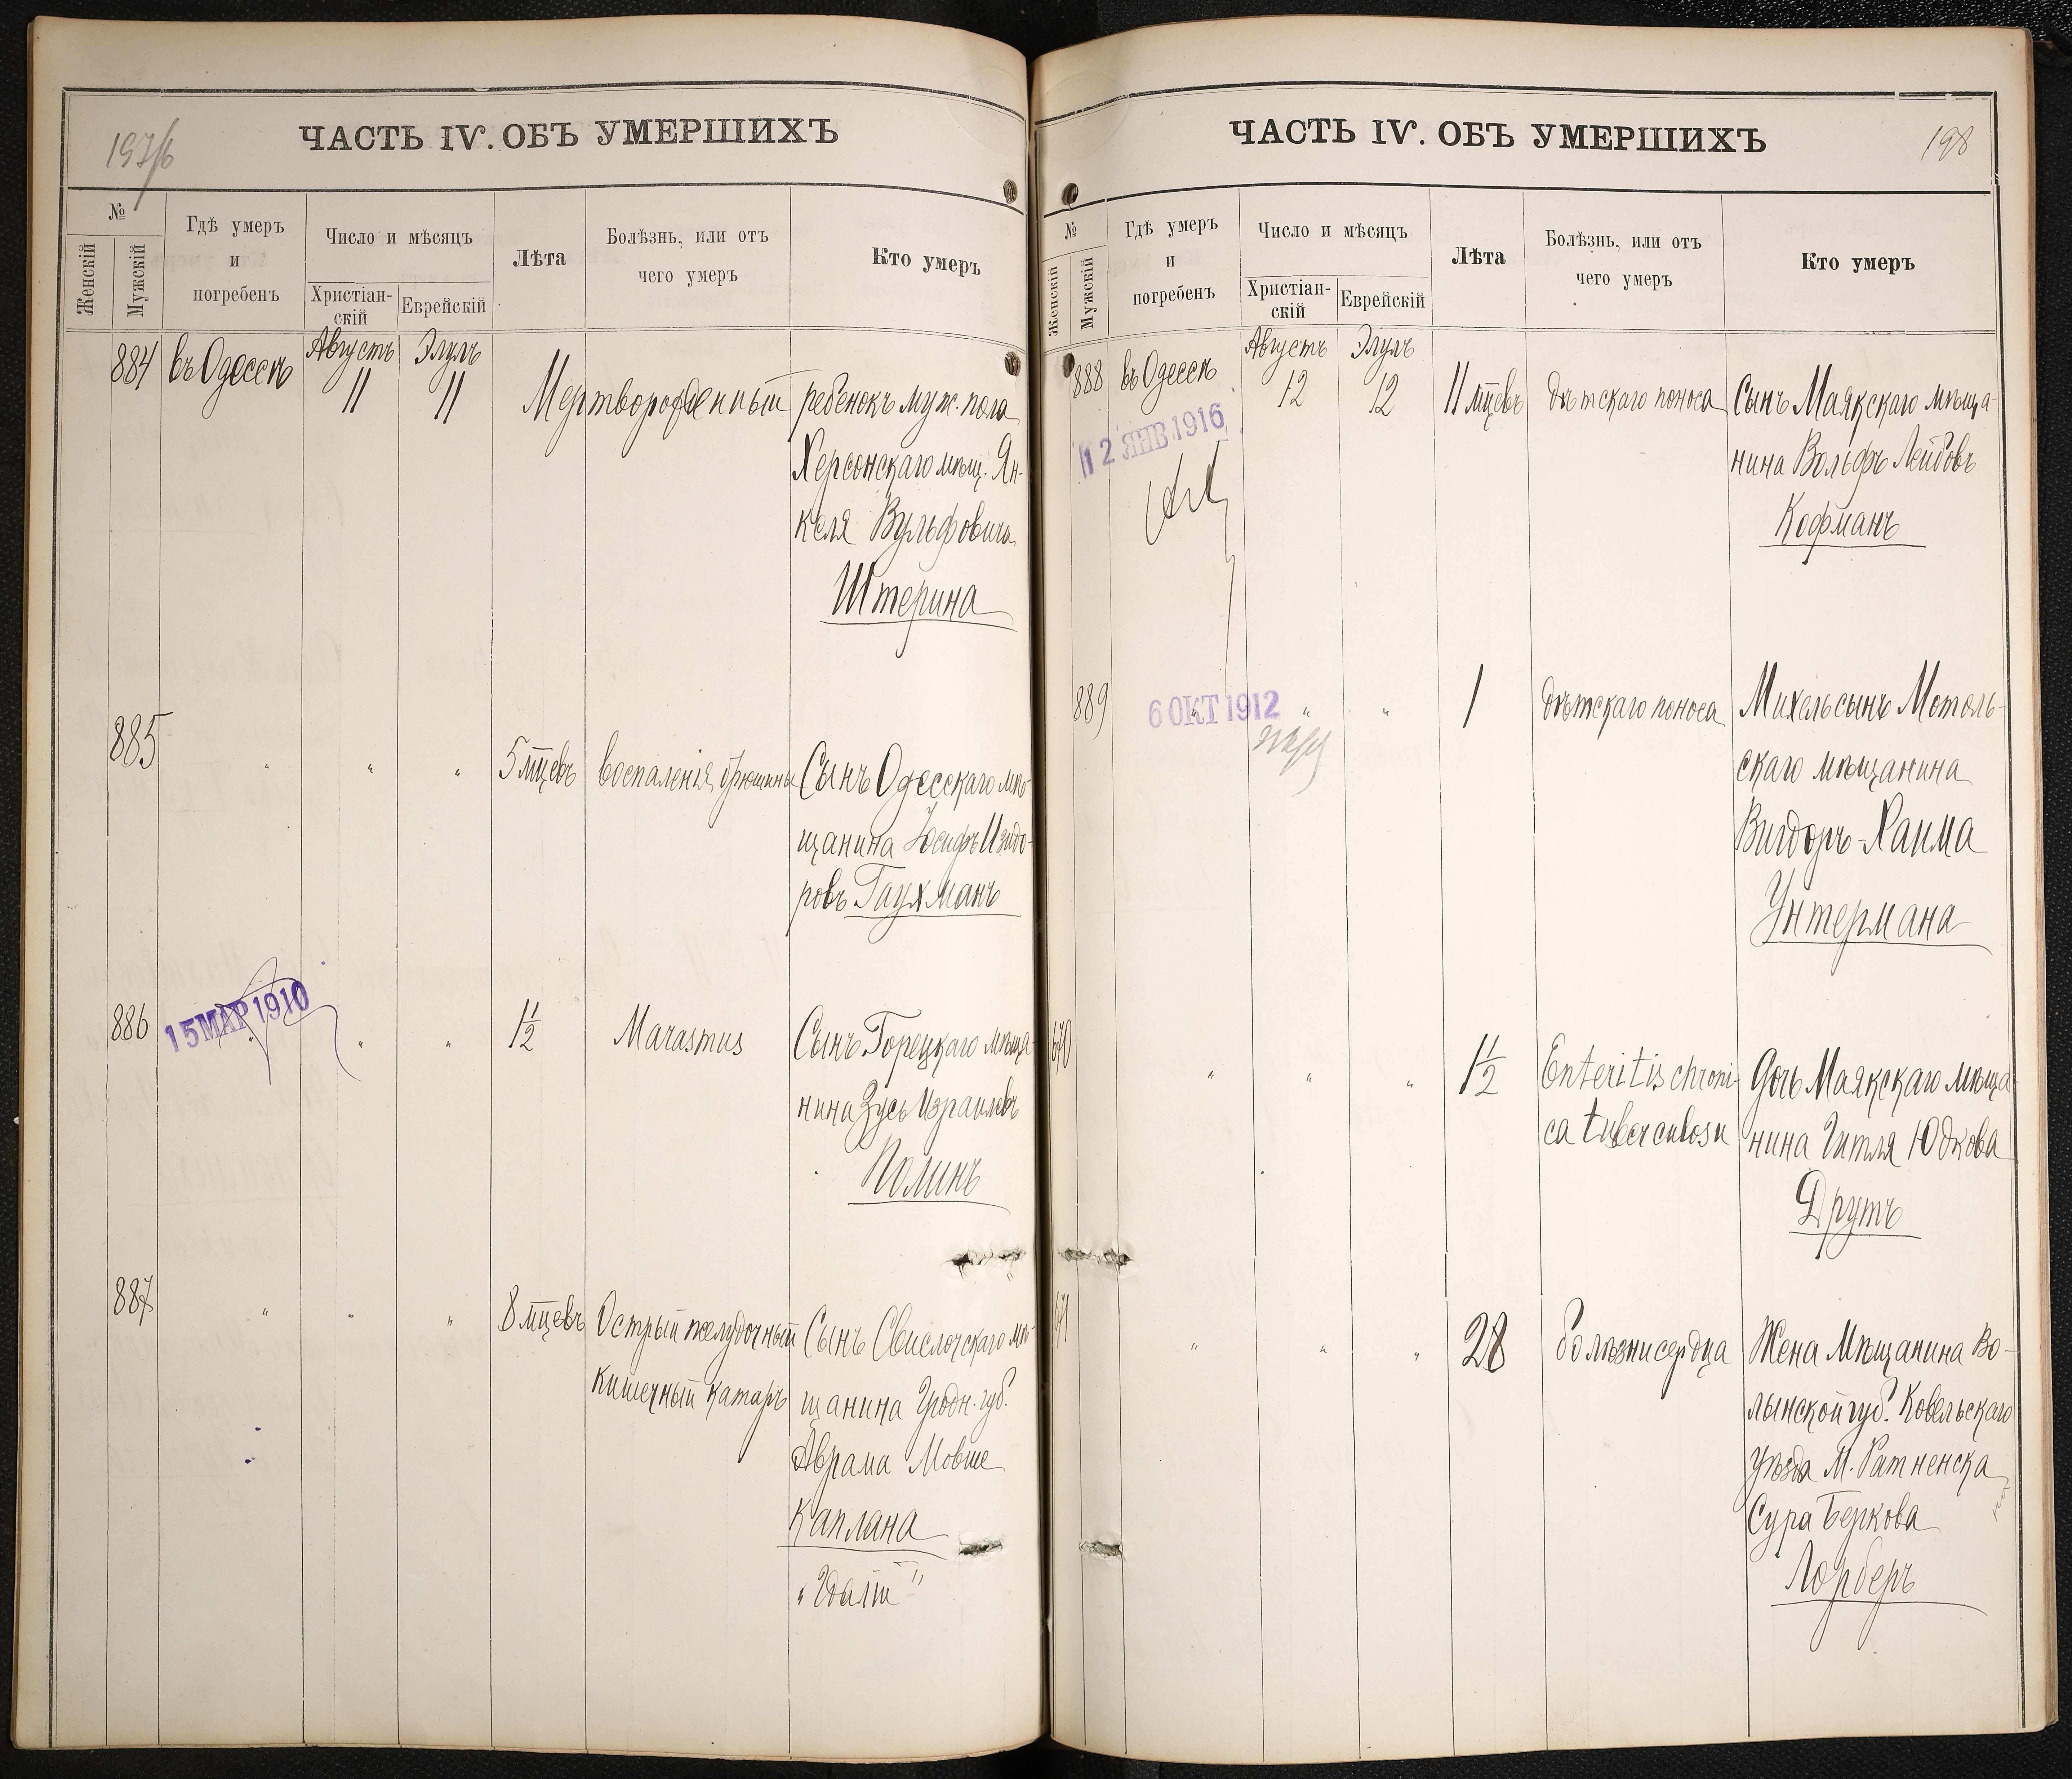 197/6
ЧАСТЬ IV. ОБЪ УМЕРШИХЪ
№
Женскій
Мужскій
Гдѣ умеръ
и
погребенъ
Число и мѣсяцъ
Христіан-
скій
Еврейскій
Лѣта
Болѣзнь, или отъ
чего умеръ
Кто умеръ
884 въ Одессѣ Августъ 11 Элулъ 11 Мертворожденный ребенокъ муж. пола
Херсонскаго мѣщ. Ян-
келя Вульфовича
Штерина
885 " " " 5 мцевъ воспаленія брюшины Сынъ Одесскаго мѣ-
щанина Іосифъ Изидо-
ровъ Гаухманъ
886 " " " 1½ Marasmus Сынъ Горецкаго мѣща-
нина Зусь Израилевъ
Полинъ
15 МАР 1910
887 " " " 8 мцевъ Острый желудочный Сынъ Свислочскаго мѣ-
кишечный катаръ щанина Гродн. губ.
Аврама Мовше
Каплана
"Гдалій"
ЧАСТЬ IV. ОБЪ УМЕРШИХЪ
198
№
Женскій
Мужскій
Гдѣ умеръ
и
погребенъ
Число и мѣсяцъ
Христіан-
скій
Еврейскій
Лѣта
Болѣзнь, или отъ
чего умеръ
Кто умеръ
888 въ Одессѣ Августъ 12 Элулъ 12 11 мцевъ дѣтскаго поноса Сынъ Маякскаго мѣща-
нина Вольфъ Лейбовъ
Кофманъ
12 ЯНВ 1916
889 " " " 1 дѣтскаго поноса Михель сынъ Мотоль-
скаго мѣщанина
Вигдоръ-Хаима
Унтермана
6 ОКТ 1912
670 " " " 1½ Enteritis chroni- Дочь Маякскаго мѣща-
ca tuberculosa нина Гитля Юдкова
Друтъ
671 " " " 28 болѣзни сердца Жена Мѣщанина Во-
лынской губ. Ковельскаго
уѣзда М. Ратненска
Сура Беркова
Лорберъ